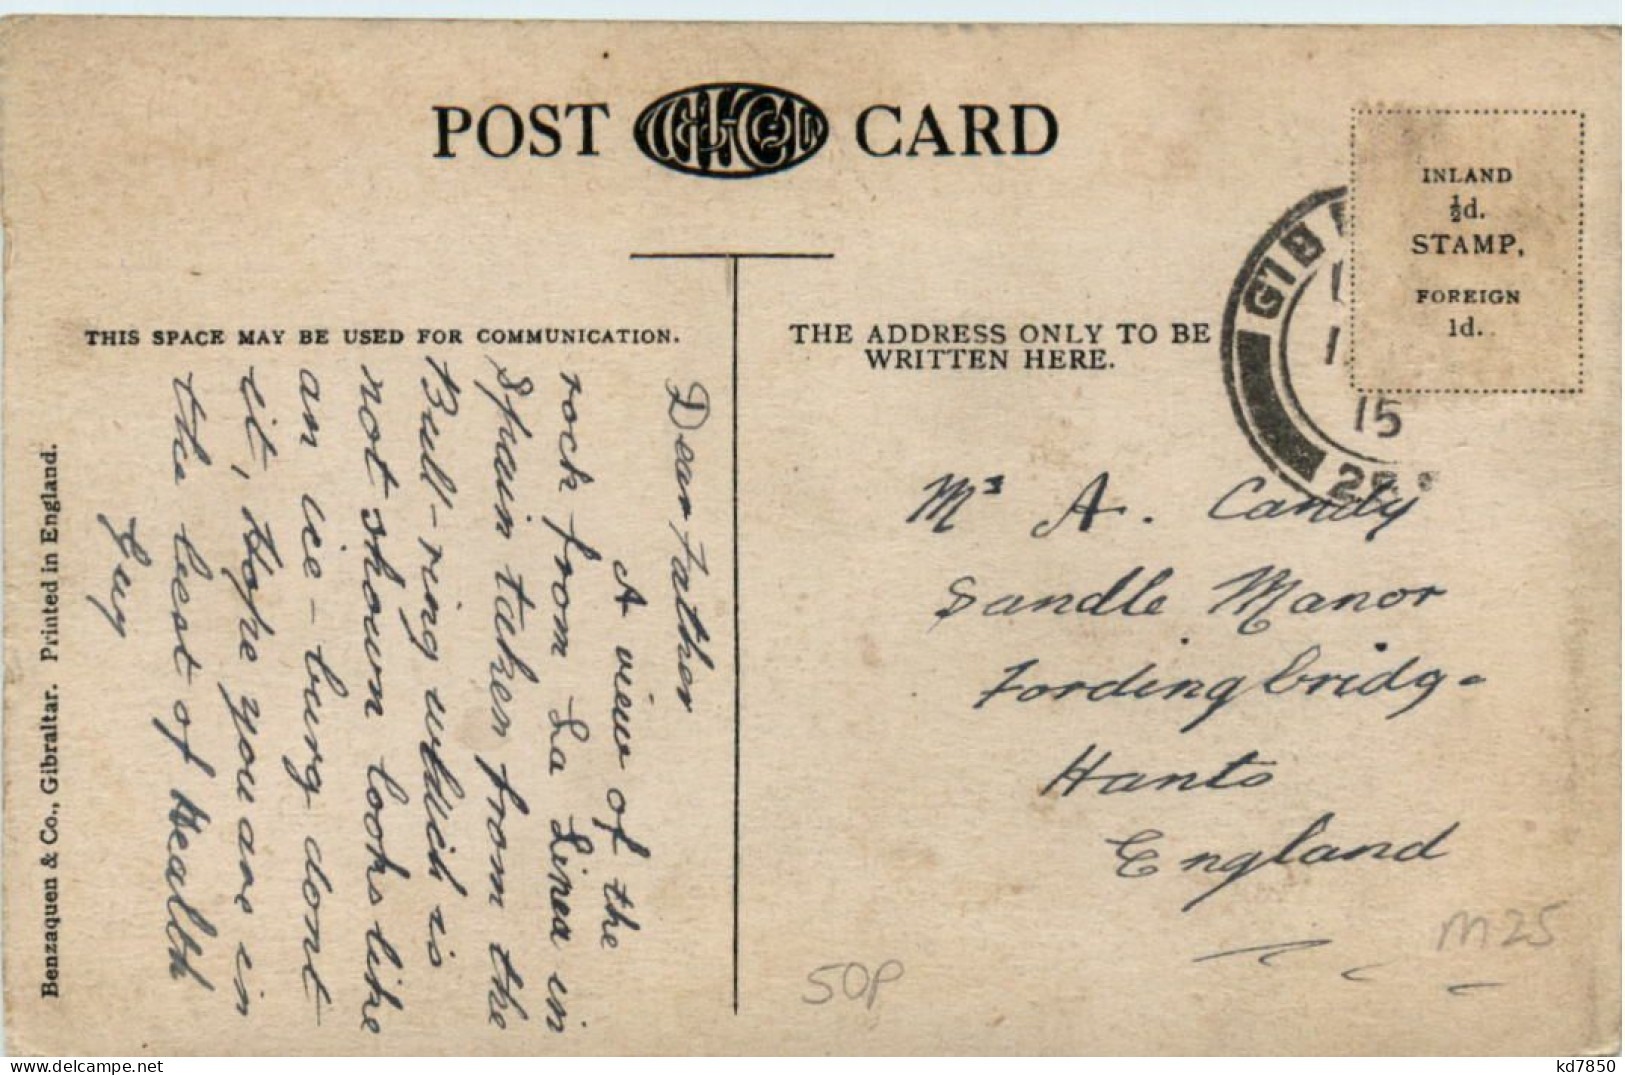 POST CARD
INLAND
½d.
STAMP.
FOREIGN
1d.
GIB
15
THIS SPACE MAY BE USED FOR COMMUNICATION.
THE ADDRESS ONLY TO BE
WRITTEN HERE.
Dear Father
A view of the
rock from La Linea in
Spain taken from the
Bull-ring which is
not shown looks like
an ice-burg dont
it, Hope you are in
the best of Health
Guy
Mr A. Candy
Sandle Manor
Fordingbridg-
Hants
England
50P
M25
Benzaquen & Co., Gibraltar. Printed in England.
kd7850